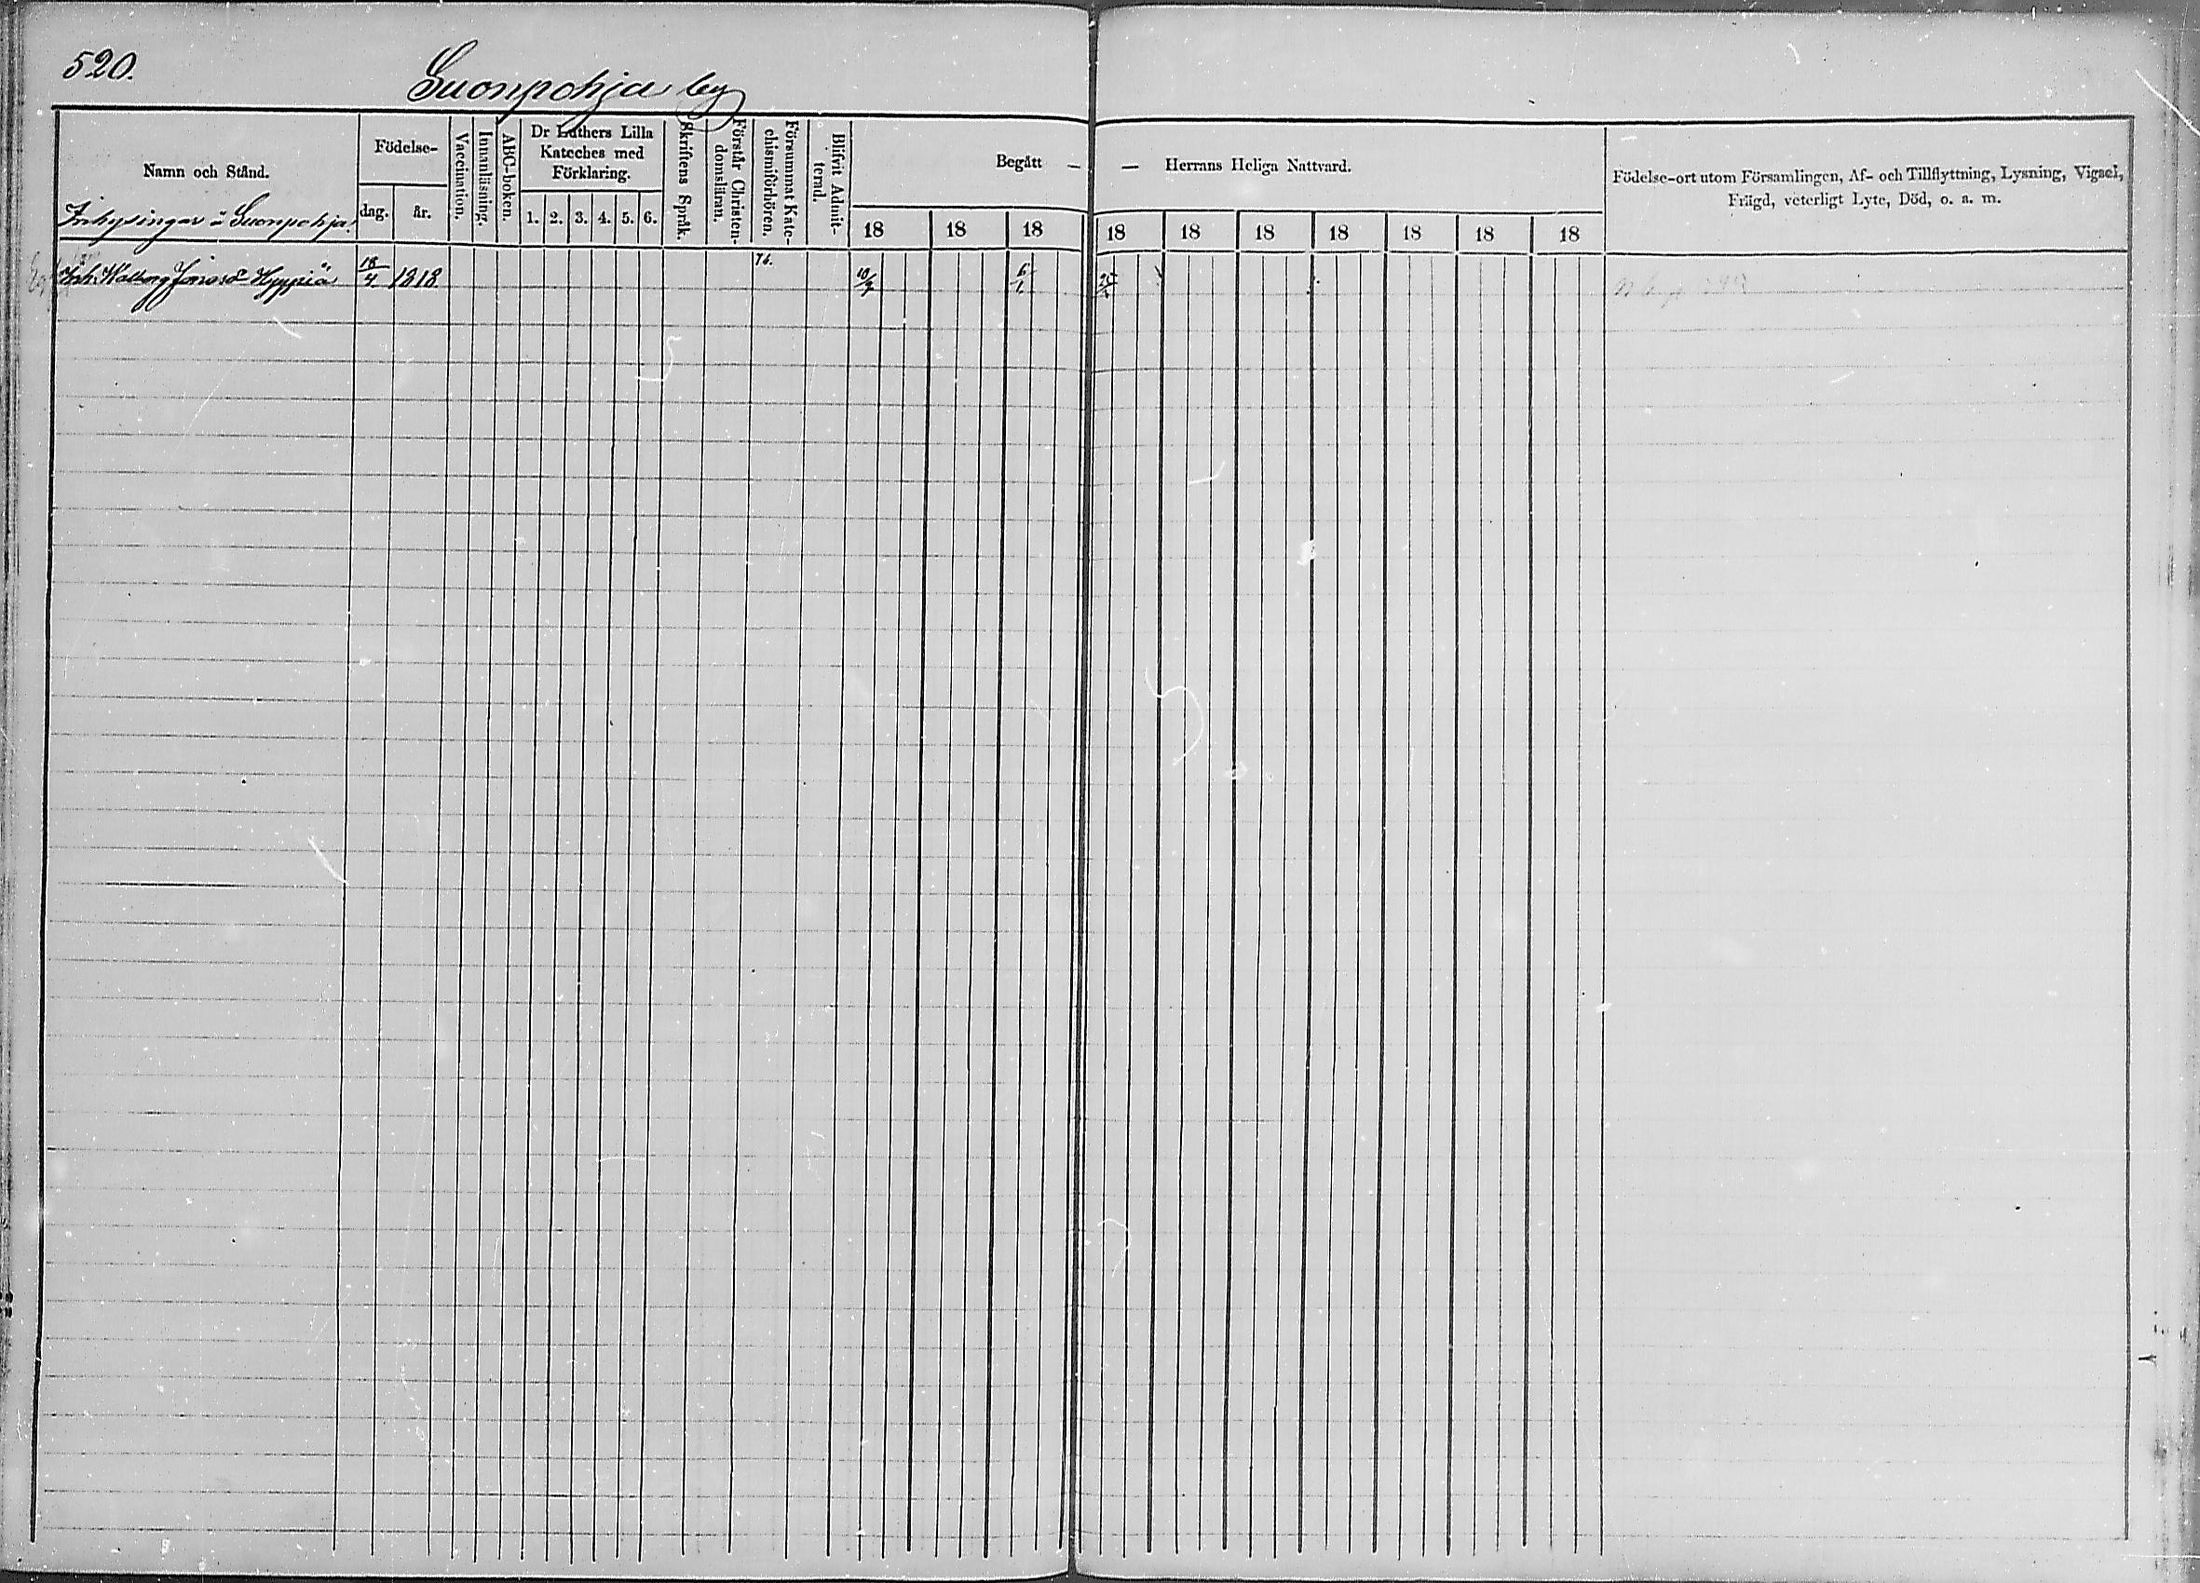 520.
Suonpohja by
Namn och Stånd.
Inhysingar i Suonpohja
Födelse-
dag.
år.
Vaccination.
Innanläsning.
ABC-boken.
Dr Luthers Lilla
Kateches med
Förklaring.
1. 2. 3. 4. 5. 6.
Skriftens Språk.
Förstår Christen-
domsläran.
Försummat Kate-
chismiförhören.
Blifvit Admit-
terad.
Begått — — Herrans Heliga Nattvard.
18 18 18 18 18 18 18 18 18 18
Födelse-ort utom Församlingen, Af- och Tillflyttning, Lysning, Vigsel,
Frägd, veterligt Lyte, Död, o. a. m.
Inh. Walborg Hyppiä 18/4 1818 76. 10/7 6/1